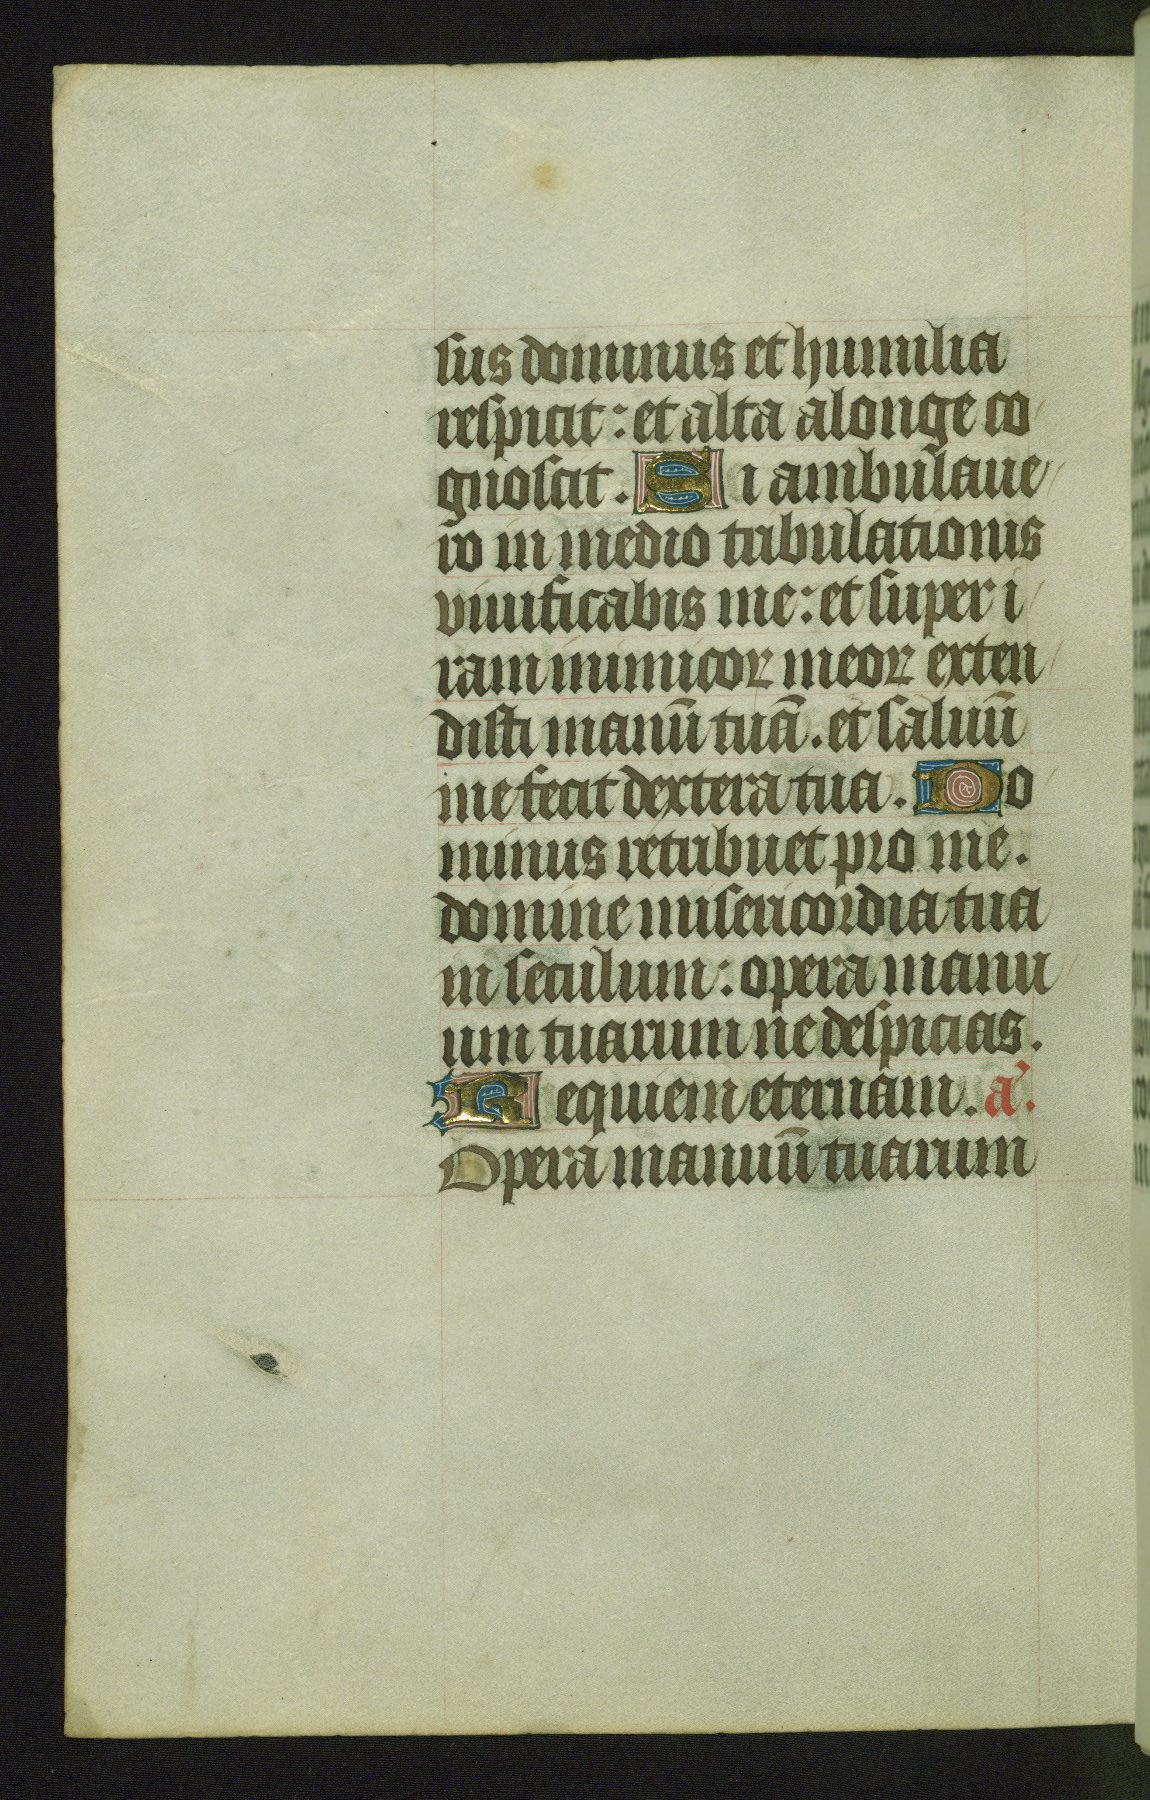 sus dominus et humilia
respicit : et alta a longe co
gnoscit . Si ambulaue
ro in medio tribulationis
viuificabis me : et super i
ram inimicoꝝ meoꝝ exten
disti manū tuā . et saluū
me fecit dextera tua . Do
minus retribuet pro me .
domine misericordia tua
in seculum : opera manu
um tuarum ne despicias .
Requiem eternam . a᷒ .
Opera manuū tuarum